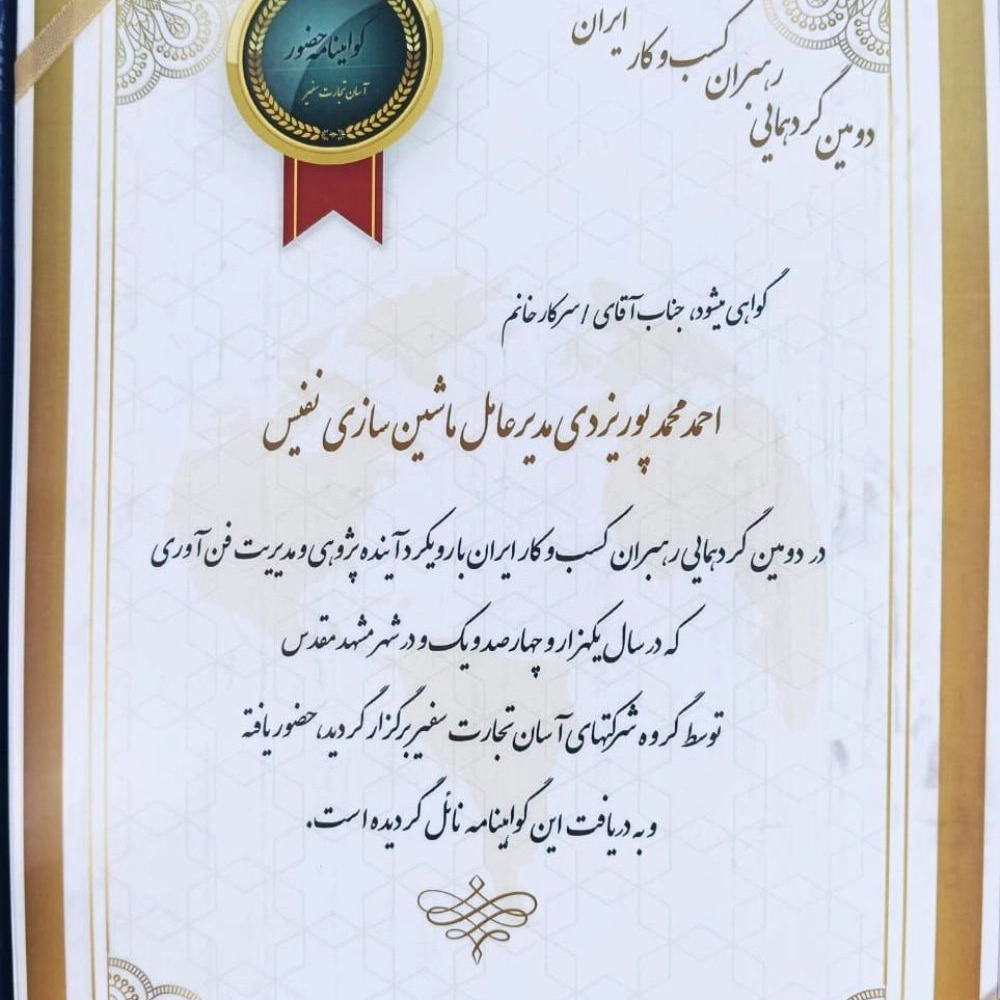 گواهینامه حضور
آسان تجارت سفیر
دومین گردهمایی
رهبران کسب و کار ایران
گواهی میشود، جناب آقای / سرکار خانم
احمد محمد پور یزدی مدیرعامل ماشین سازی نفیس
در دومین گردهمایی رهبران کسب و کار ایران با رویکرد آینده پژوهی و مدیریت فن آوری
که در سال یکهزار و چهارصد و یک و در شهر مشهد مقدس
توسط گروه شرکتهای آسان تجارت سفیر برگزار گردید، حضور یافته
و به دریافت این گواهینامه نائل گردیده است.